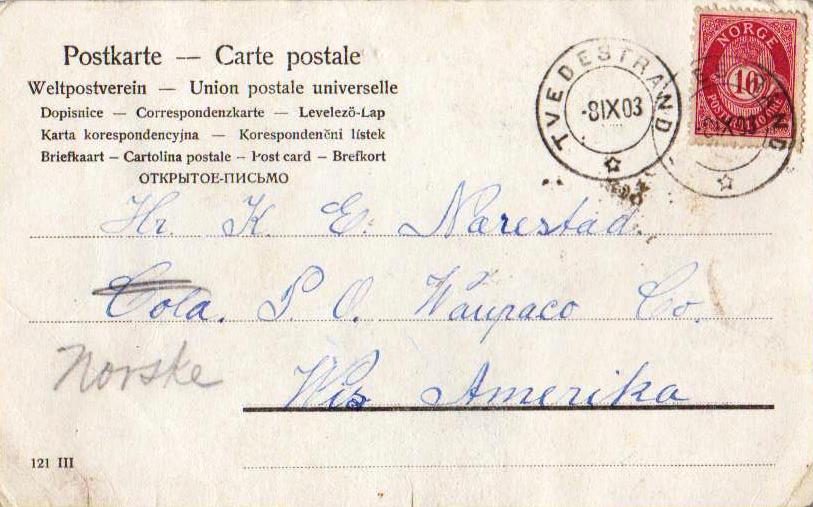 Postkarte — Carte postale
Weltpostverein — Union postale universelle
Dopisnice — Correspondenzkarte — Levelező-Lap
Karta korespondencyjna — Korespondenčni lístek
Briefkaart — Cartolina postale — Post card — Brefkort
ОТКРЫТОЕ-ПИСЬМО
TVEDESTRAND
-8IX03
NORGE
10
Hr. K E. Nærestad.
Cola. P O. Waupaco Co.
Norske
Wis Amerika
121 III